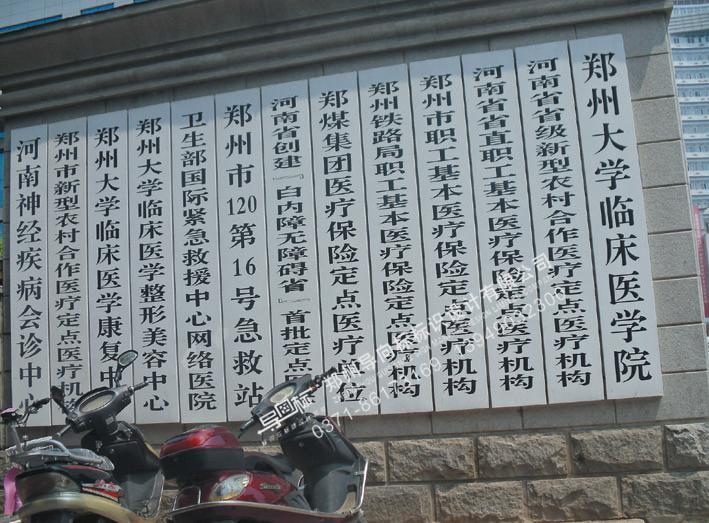 郑州大学临床医学院
河南省省级新型农村合作医疗定点医疗机构
河南省省直职工基本医疗保险定点医疗机构
郑州市职工基本医疗保险定点医疗机构
郑州铁路局职工基本医疗保险定点医疗机构
郑煤集团医疗保险定点医疗单位
河南省创建『白内障无障碍省』首批定点
郑州市120第16号急救站
卫生部国际紧急救援中心网络医院
郑州大学临床医学整形美容中心
郑州大学临床医学康复中
郑州市新型农村合作医疗定点医疗机
河南神经疾病会诊中心
导向标
郑州导向标标识设计有限公司